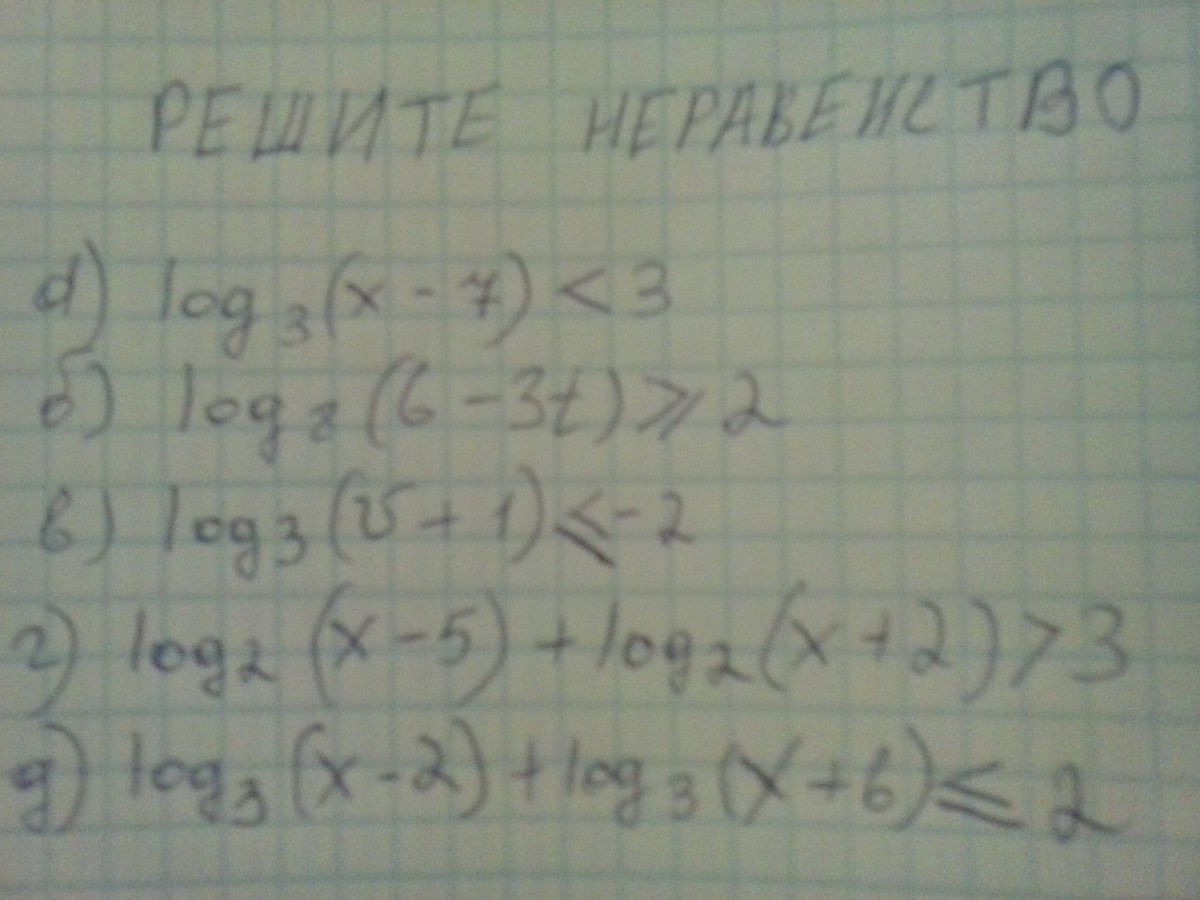 РЕШИТЕ НЕРАВЕНСТВО
а) log₃(x - 7) < 3
б) log₈(6 - 3t) ⩾ 2
в) log₃(v + 1) ⩽ -2
г) log₂(x - 5) + log₂(x + 2) > 3
д) log₃(x - 2) + log₃(x + 6) ⩽ 2